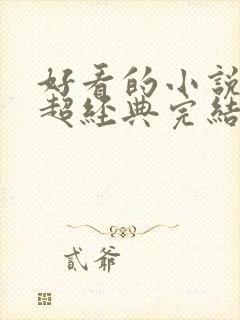 好看的小說
超經典完結
貳爺